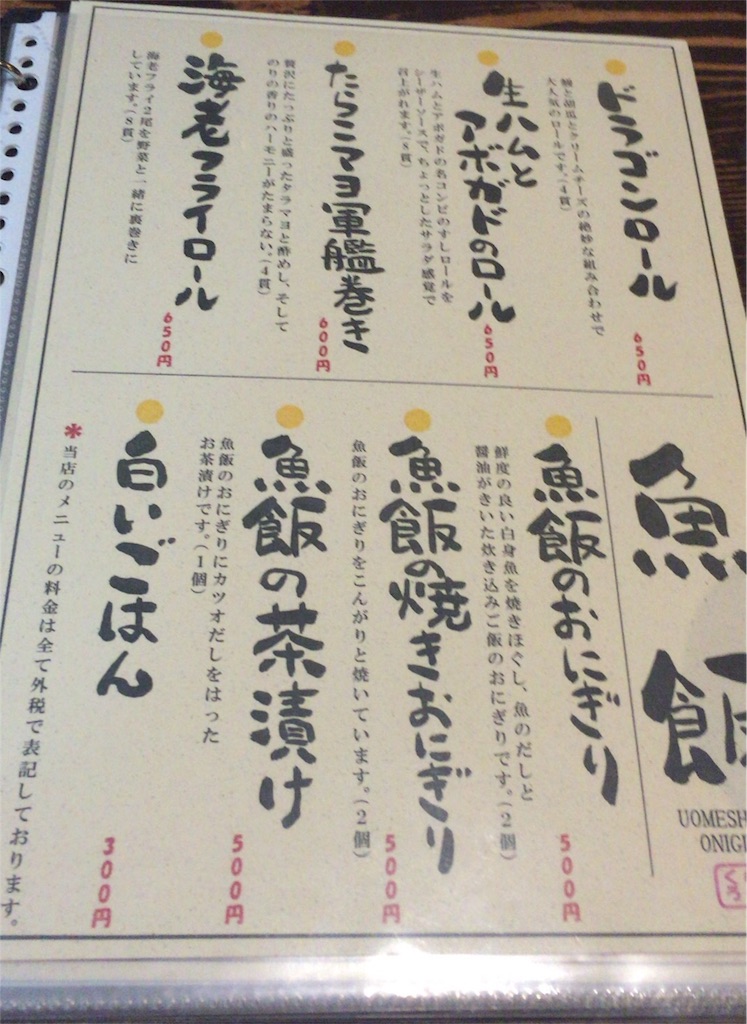 ドラゴンロール
鰻と胡瓜とクリームチーズの絶妙な組み合わせで
大人気のロールです。(4貫)
650円
生ハムと
アボガドのロール
生ハムとアボガドの名コンビのすしロールを
シーザーソースで、ちょっとしたサラダ感覚で
召上がれます。(8貫)
650円
たらこマヨ軍艦巻き
贅沢にたっぷりと盛ったタラマヨと酢めし、そして
のりの香りのハーモニーがたまらない。(4貫)
600円
海老フライロール
海老フライ2尾を野菜と一緒に裏巻きに
しています。(8貫)
650円
魚飯
UOMESH
ONIGI
魚飯のおにぎり
鮮度の良い白身魚を焼きほぐし、魚のだしと
醤油がきいた炊き込みご飯のおにぎりです。(2個)
500円
魚飯の焼きおにぎり
魚飯のおにぎりをこんがりと焼いています。(2個)
500円
魚飯の茶漬け
魚飯のおにぎりにカツオだしをはった
お茶漬けです。(1個)
500円
白いごはん
300円
*当店のメニューの料金は全て外税で表記しております。